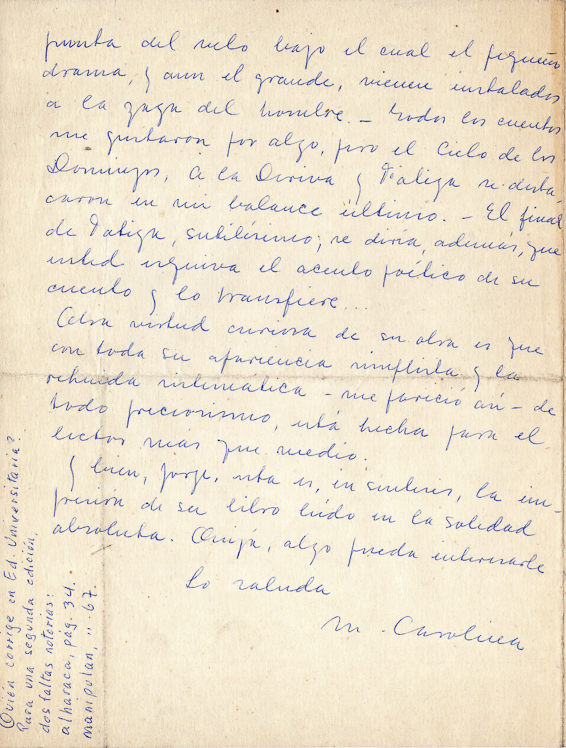 punta del velo bajo el cual el pequeño
drama, y aun el grande, vienen instalados
a la zaga del hombre. - Todos los cuentos
me gustaron por algo, pero el Cielo de los
Domingos, A la Deriva y Fatiga se desta
caron en mi balance último. - El final
de Fatiga, sutilísimo; se diría, además, que
usted esquiva el acento poético de su
cuento y lo transfiere...
Otra virtud curiosa de su obra es que
con toda su apariencia simplista y la
rehuida sistemática - me pareció así - de
todo preciosismo, está hecha para el
lector más que medio.
Y bien, Jorge, esta es, en síntesis, la im-
presión de su libro leído en la soledad
absoluta. Quizá, algo pueda interesarle
Lo saluda
M. Carolina
Quién corrige en Ed. Universitaria?
Para una segunda edición,
dos faltas notorias:
alharaca, pág. 34.
manipulan, " 67.